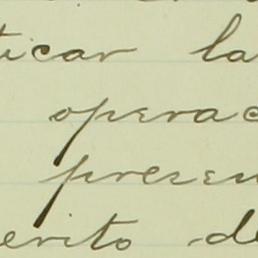 ticar la
operac
presen
erito de